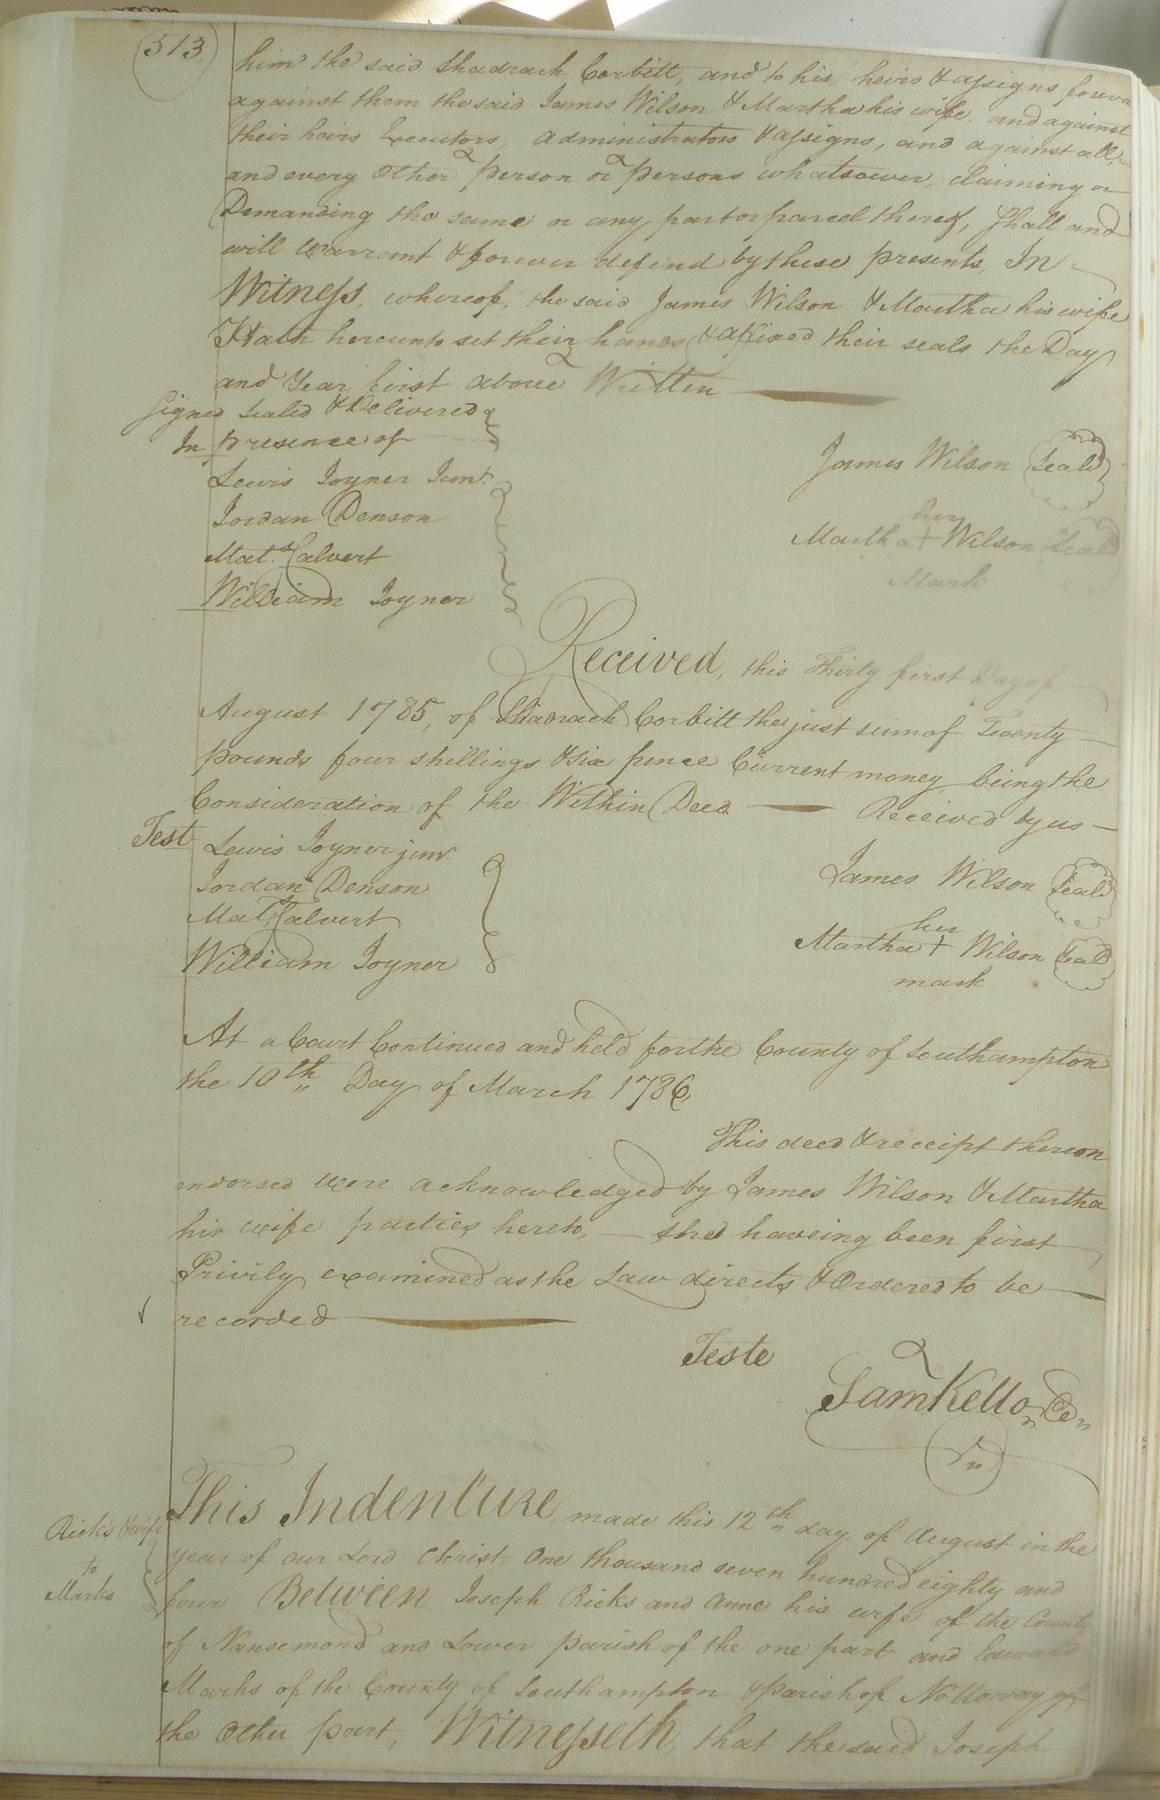 513
him the said Shadrach Corbitt, and to his heirs & assigns foreva
against them the said James Wilson & Martha his wife, and against
their heirs Executors, administrators & assigns, and against all
and every other person or persons whatsoever, claiming or
Demanding the same or any part or parcel thereof, Shall and
will warrant & forever defend by these presents, In
Witness, whereof, the said James Wilson & Martha his wife
Hath hereunto set their hands & affixed their seals the Day
and Year first above Written
Signed Sealed & Delivered
In presence of
Lewis Joyner Junr.
Jordan Denson
Mat. Calvert
William Joyner
James Wilson Seald
her
Martha + Wilson Seald
Mark
Received, this Thirty first Day of
August 1785, of Shadrach Corbitt the just sum of Twenty
pounds four shillings & six pence Current money being the
Consideration of the Within Deed Received by us
Test Lewis Joyner junr.
Jordan Denson
Mat. Calvert
William Joyner
James Wilson Seald
her
Martha + Wilson Seald
mark
At a Court Continued and held for the County of Southampton
the 10th Day of March 1786
This deed & receipt thereon
endorsed were acknowledged by James Wilson & Martha
his wife parties hereto, — she haveing been first
Privily examined as the Law directs & Ordered to be
recorded
Teste
Sam Kello
This Indenture made this 12th day of August in the
Ricks & wife
to
Marks
year of our Lord Christ, One thousand seven hundred eighty and
four Between Joseph Ricks and Anne his wife of the County
of Nansemond and Lower parish of the one part and Edward
Marks of the County of Southampton & parish of Nottoway of
the Other part, Witnesseth, that the said Joseph